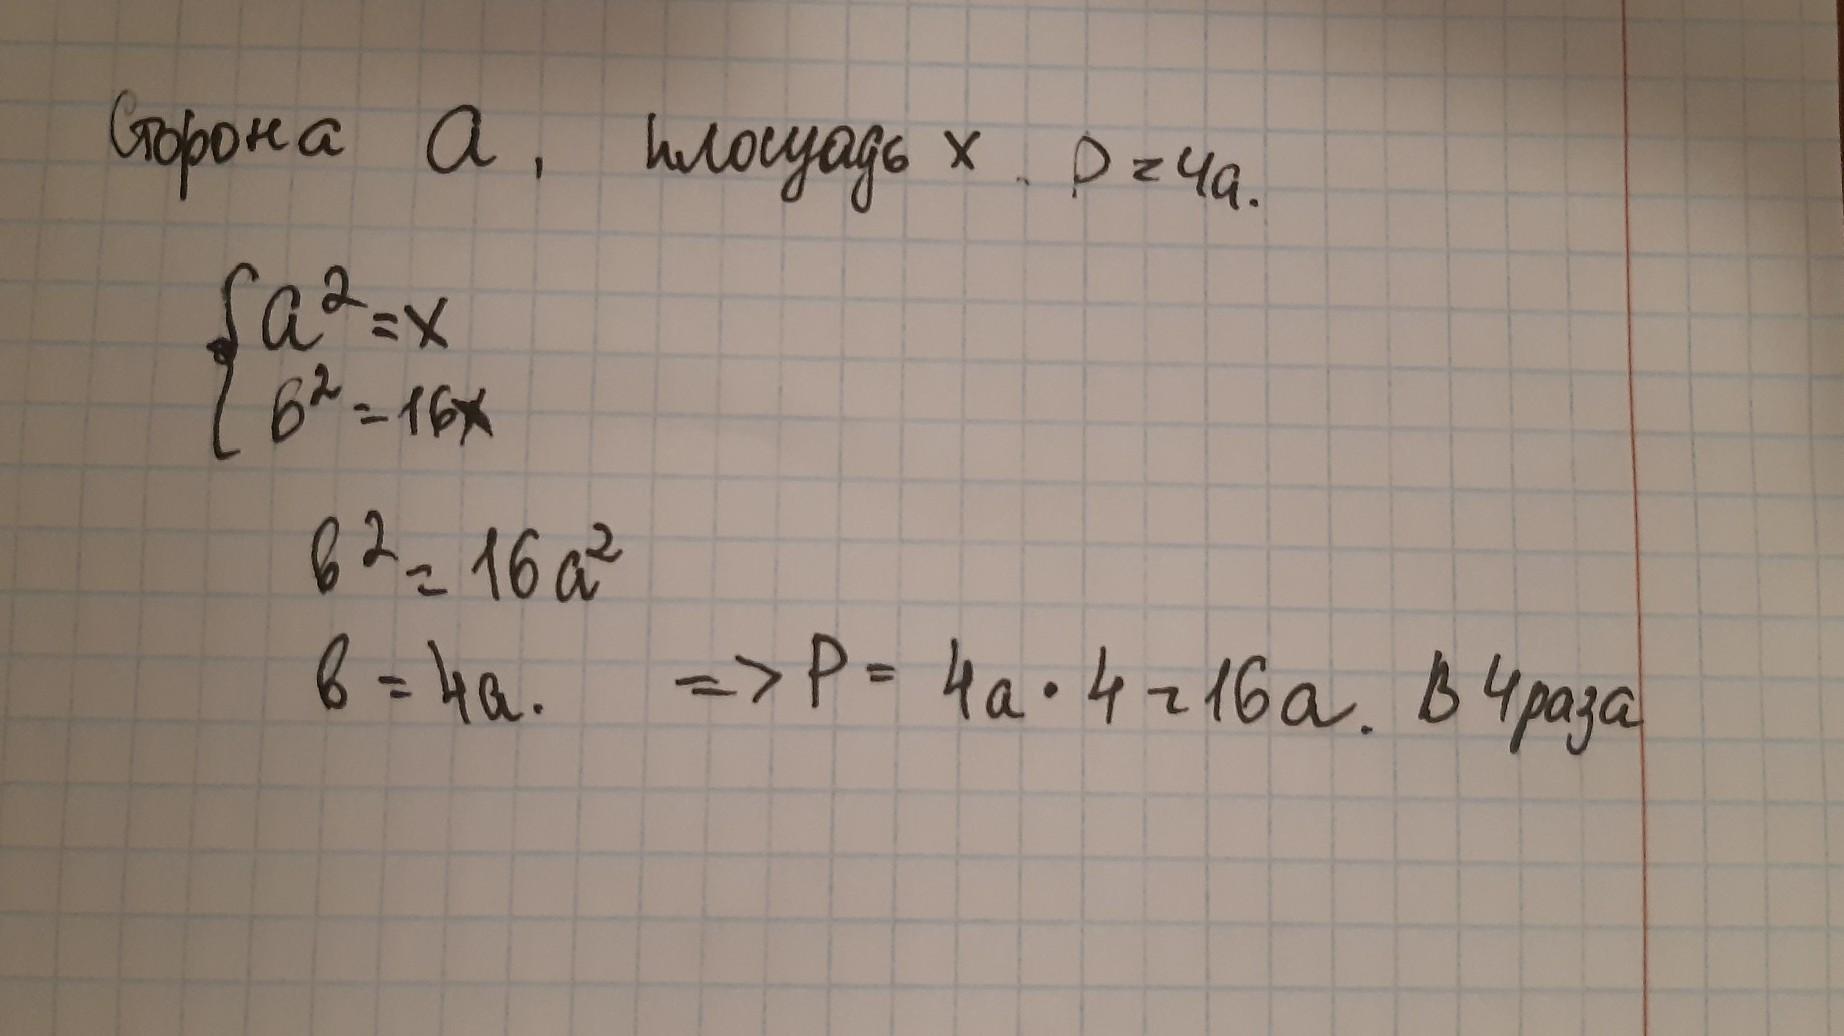 Сторона a, площадь x. P = 4a.
{ a² = x
в² = 16x
в² = 16a²
в = 4a. => P = 4a · 4 = 16a. В 4 раза